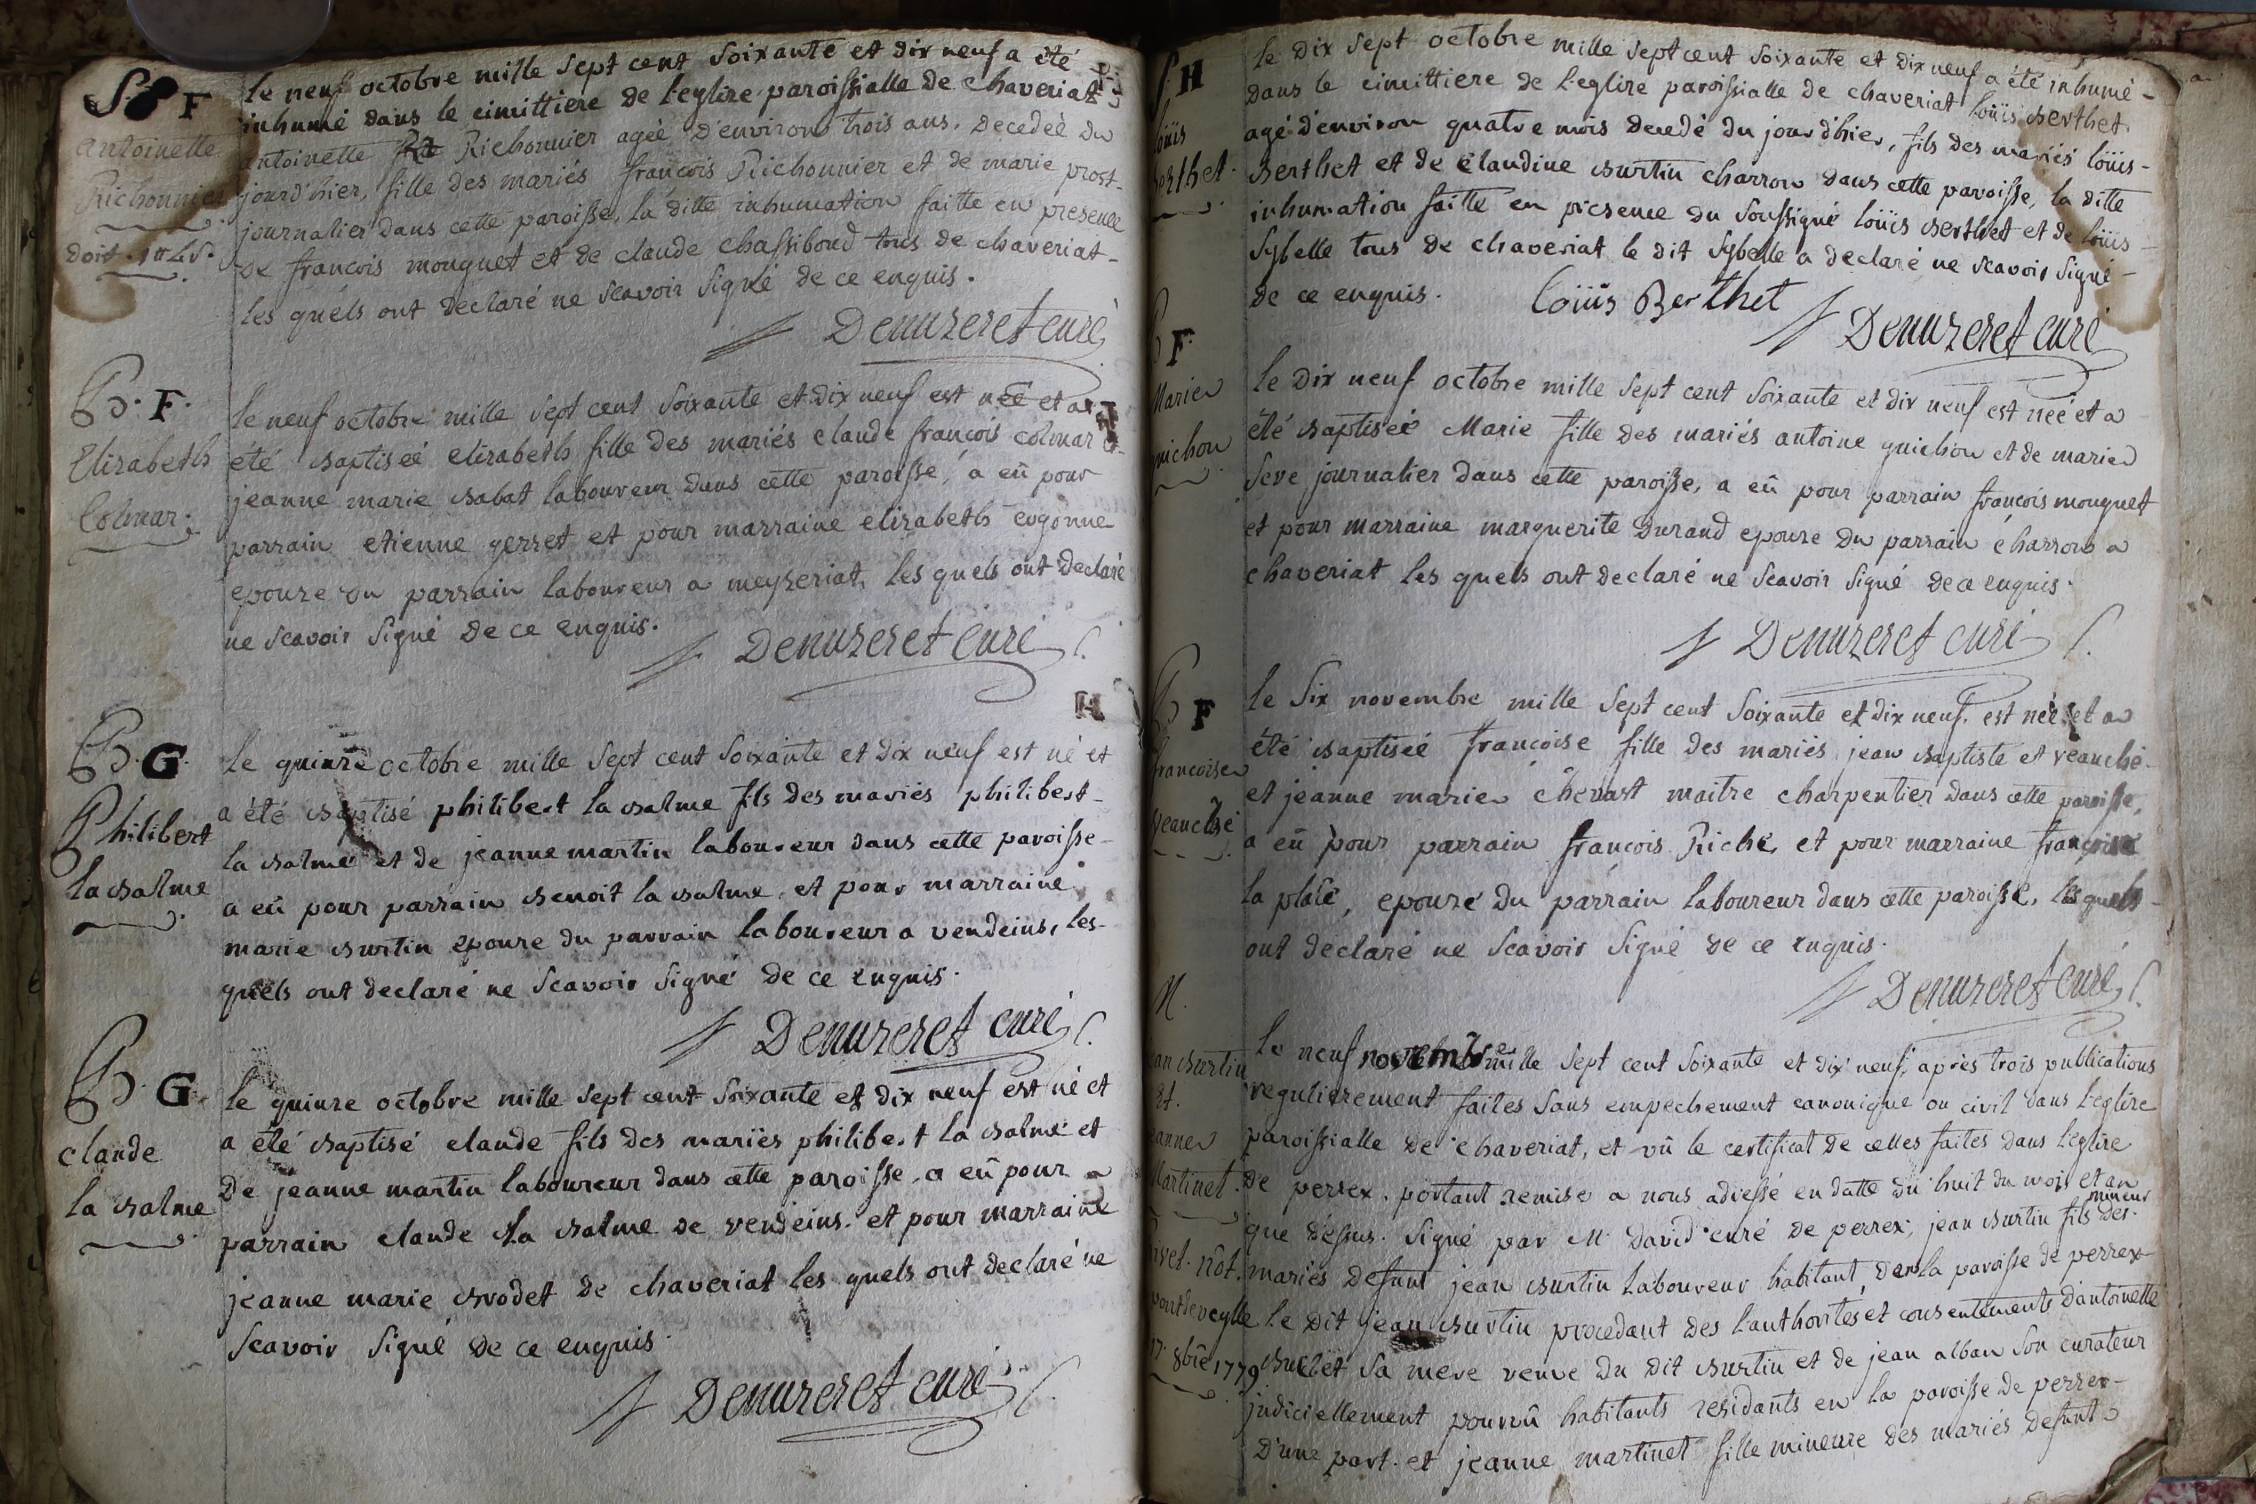 S. F
antoinette
Richonnier
doit
le neuf octobre mille sept cent soixante et dix neuf a été
inhumé dans le cimittiere de l'eglize paroissialle de chaveriat
antoinette Richonnier ageé d'environ trois ans, decedeé du
jourd'hier, fille des mariés francois Richonnier et de marie prost-
journalier dans cette paroisse, la ditte inhumation faitte en presence
de francois monguet et de claude chassiboud tous de chaveriat-
les quels ont declaré ne scavoir signé de ce enquis.
Denuzeret curé
B. F.
Elizabeth
Colmar.
le neuf octobre mille sept cent soixante et dix neuf est neé et a
été baptiseé elizabeth fille des mariés claude francois colmar et
jeanne marie babat laboureur dans cette paroisse, a eü pour
parrain etienne gerret et pour marraine elizabeth eugonne
epouze du parrain laboureur a meyzeriat, les quels ont declaré
ne scavoir signé de ce enquis.
Denuzeret curé
H
B. G.
Philibert
la balme
le quinze octobre mille sept cent soixante et dix neuf est né et
a été baptisé philibert la balme fils des mariés philibert-
la balme et de jeanne martin laboureur dans cette paroisse-
a eü pour parrain benoit la balme, et pour marraine
marie burtin epouze du parrain laboureur a vendeins, les-
quels ont declaré ne scavoir signé de ce enquis.
Denuzeret curé
B. G.
claude
la balme
le quinze octobre mille sept cent soixante et dix neuf est né et
a été baptisé claude fils des mariés philibert la balme et
de jeanne martin laboureur dans cette paroisse, a eü pour
parrain claude la balme de vendeins. et pour marraine
jeanne marie brodet de chaveriat les quels ont declaré ne
scavoir signé de ce enquis.
Denuzeret curé
S. H
loüis
berthet.
le dix sept octobre mille sept cent soixante et dix neuf a été inhumé-
dans le cimittiere de l'eglize paroissialle de chaveriat loüis berthet
agé d'environ quatre mois decedé du jour d'hier, fils des mariés loüis-
berthet et de claudine burtin charron dans cette paroisse, la ditte
inhumation faitte en presence du soussigné loüis berthet et de loüis-
sybelle tous de chaveriat le dit sybelle a declaré ne scavoir signé-
de ce enquis.
loüis Berthet
Denuzeret curé
B F.
Marie
guichon
le dix neuf octobre mille sept cent soixante et dix neuf est neé et a
été baptiseé Marie fille des mariés antoine guichon et de marie
seve journalier dans cette paroisse, a eü pour parrain francois monguet
et pour marraine marguerite durand epouze du parrain charron a
chaveriat les quels ont declaré ne scavoir signé de ce enquis.
Denuzeret curé
B F
francoise
veauché
le six novembre mille sept cent soixante et dix neuf. est neé et a
été baptiseé francoise fille des mariés jean baptiste et veauché-
et jeanne marie chevart maitre charpentier dans cette paroisse,
a eü pour parrain francois Riché, et pour marraine francoise
la place, epouze du parrain laboureur dans cette paroisse, les quels-
ont declaré ne scavoir signé de ce enquis.
Denuzeret curé
M.
jean burtin
et.
jeanne
Martinet.
not.
pontdeveylle
17. 8bre 1779
le neuf novembre mille sept cent soixante et dix neuf, après trois publications
regulierement faites sans empechement canonique ou civil dans l'eglize
paroissialle de chaveriat, et vû le certificat de celles faites dans l'eglize
de perrex. portant remise a nous adressé en datte du huit du mois et an
que dessus. signé par M. David curé de perrex, jean burtin fils mineur des.
mariés defunt jean burtin laboureur habitant, de la paroisse de perrex
le dit jean burtin procedant des l'authorités et consentements d'antoinette
buclet sa mere veuve du dit burtin et de jean alban son curateur
judiciellement pourvû habitants residants en la paroisse de perrex-
d'une part. et jeanne martinet fille mineure des mariés defunt